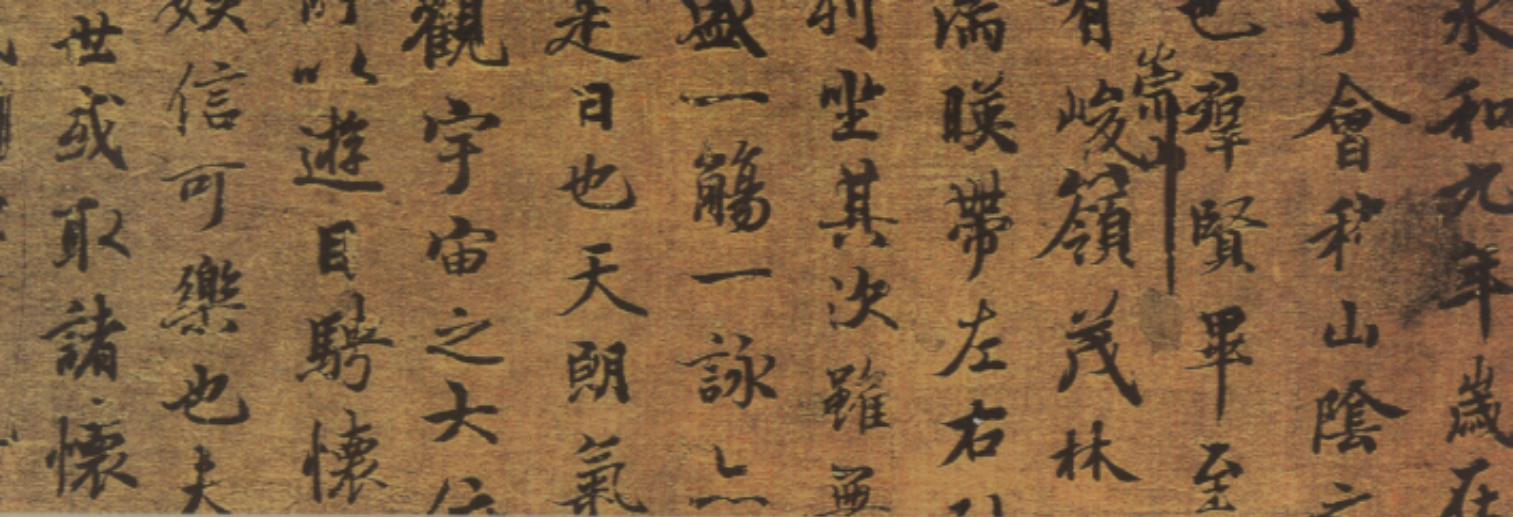 永和九年歲在
于會稽山陰之
也羣賢畢至
有崇山峻嶺茂林
湍暎帶左右引
列坐其次雖無
盛一觴一詠亦
是日也天朗氣
觀宇宙之大
所以遊目騁懷
娛信可樂也夫
世或取諸懷